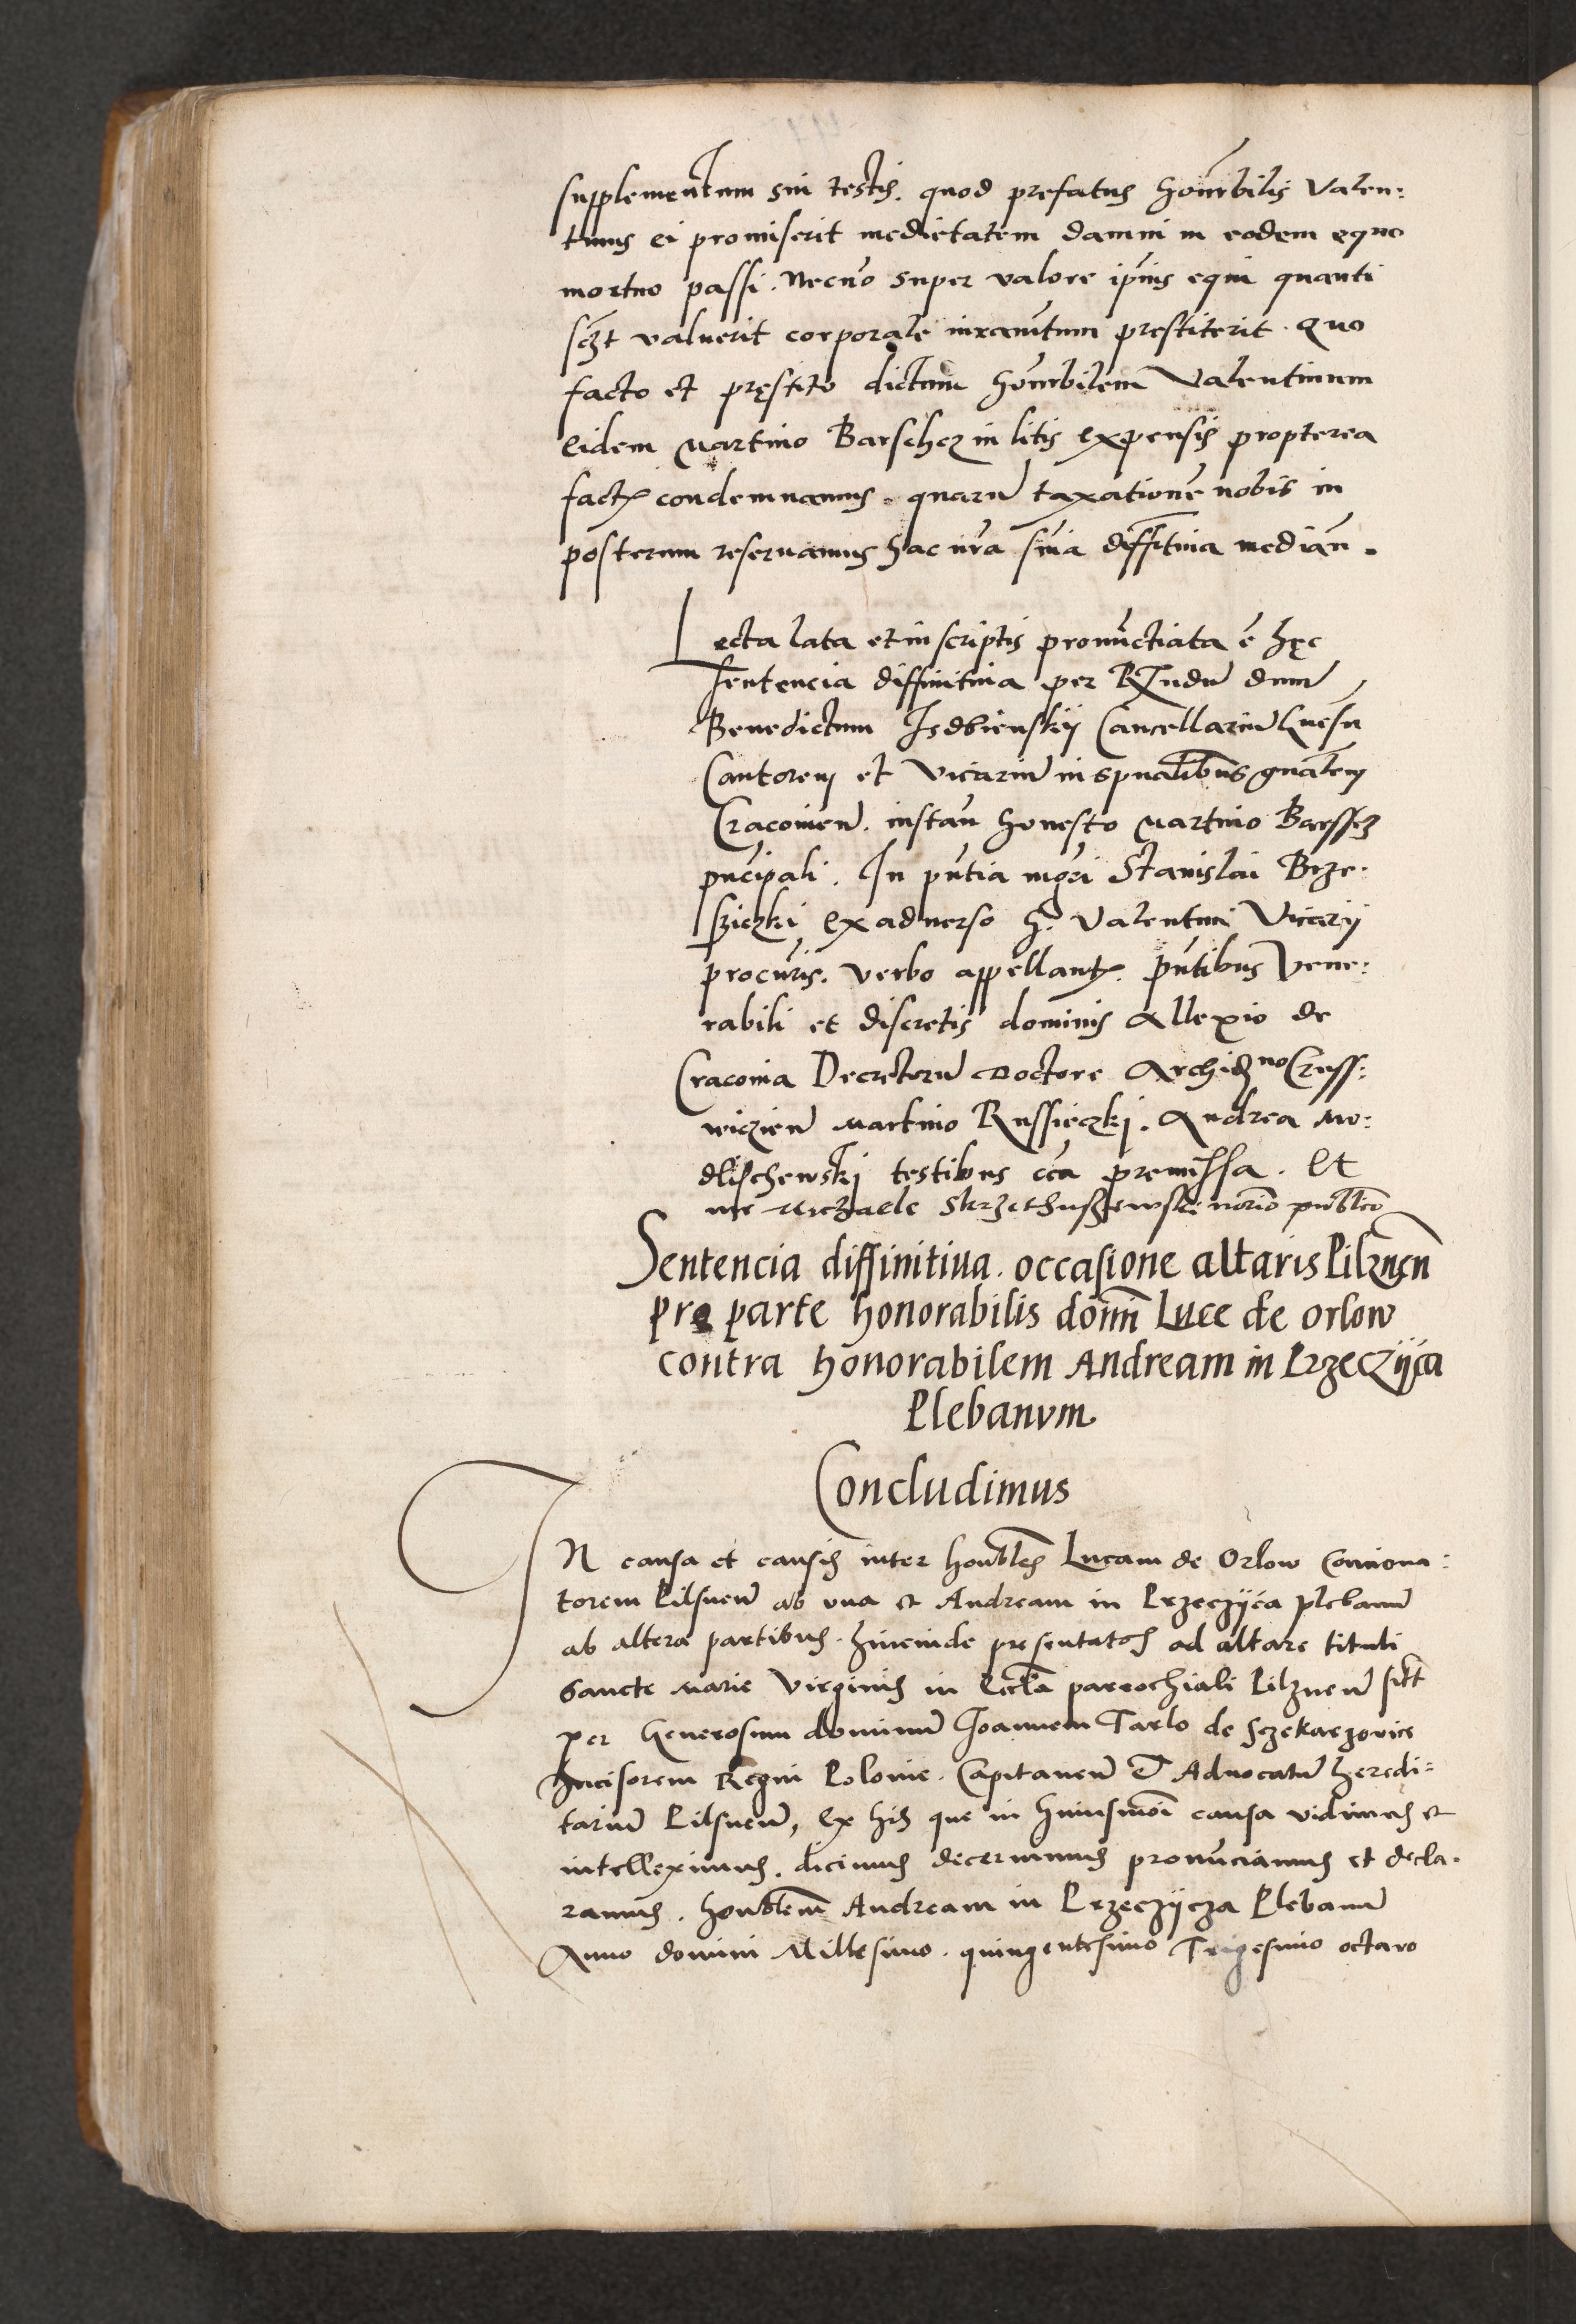 supplementum sui testis. quod prefatus hono͞rbilis Valen:
tinus ei promiserit medietatem damni in eodem equo
mortuo passi. Necno͞ super valore ip͞ius equi quanti
sc͞z̄t valuerit corporale iura͞mtum prestiterit. quo
facto et pręstito dictum hono͞rbilem Valentinum
eidem Martino Barschcz in litis expensis propterea
fact̄ condemnamus. quaru͞ taxatione͞ nobis in
posterum reseruamus hac nr͞a sn͞ia diffi͞tiua media͞n.
Lecta lata et in scriptis pronu͞ctiata e͞ hęc
sentencia diffinitiua per R͞ndu͞ dnm͞
Benedictum Isdbienskij Cancellariu͞ Gnesn͞
Cantorem et Vicariu͞ in sp͞ualibus gn͞alem
Cracouien͞. insta͞n honesto Martino Barsscz
pn͞cipali. In pn͞tia mg͞ri Stanislai Brze:
sziczki ex aduerso h. Valentini Vicarij
procur͞is. verbo appellant̄. pn͞tibus Vene:
rabili et discretis dominis Allexio de
Cracouia Decretoru͞ Doctore Archid͞no Cruss:
wiczien͞ Martino Russieczkj. Andrea Mo:
dlischewskj testibus cc͞a premissa. Et
me Michaele Skrzethuszewski nor͞io publ͞ico
Sentencia diffinitiua. occasione altaris Pilznen͞
pro parte honorabilis dom͞ni Luce de Orlow
contra honorabilem Andream in Przeczijca
Plebanum
Concludimus
IN causa et causis inter honb͞les Lucam de Orlow Conciona:
torem Pilsnen͞ ab vna et Andream in Przeczijca plebanu͞
ab altera partibus. hincinde presentatos ad altare tituli
Sancte Marie Virginis in Eccl͞a parrochiali Pilznen͞ sit͞t
per Generosum dominu͞ Joannem Tarlo de Sczekarzovice
Incisorem Regni Polonie. Capitaneu͞ et Aduocatu͞ heredi:
tariu͞ Pilsnen͞, Ex his que in huiusmo͞i causa vidimus et
intelleximus. dicimus decernimus pronu͞ciamus et decla:
ramus. honb͞lem Andream in Przeczijcza Plebanu͞
Anno domini Millesimo. quingentesimo Trigesimo octavo